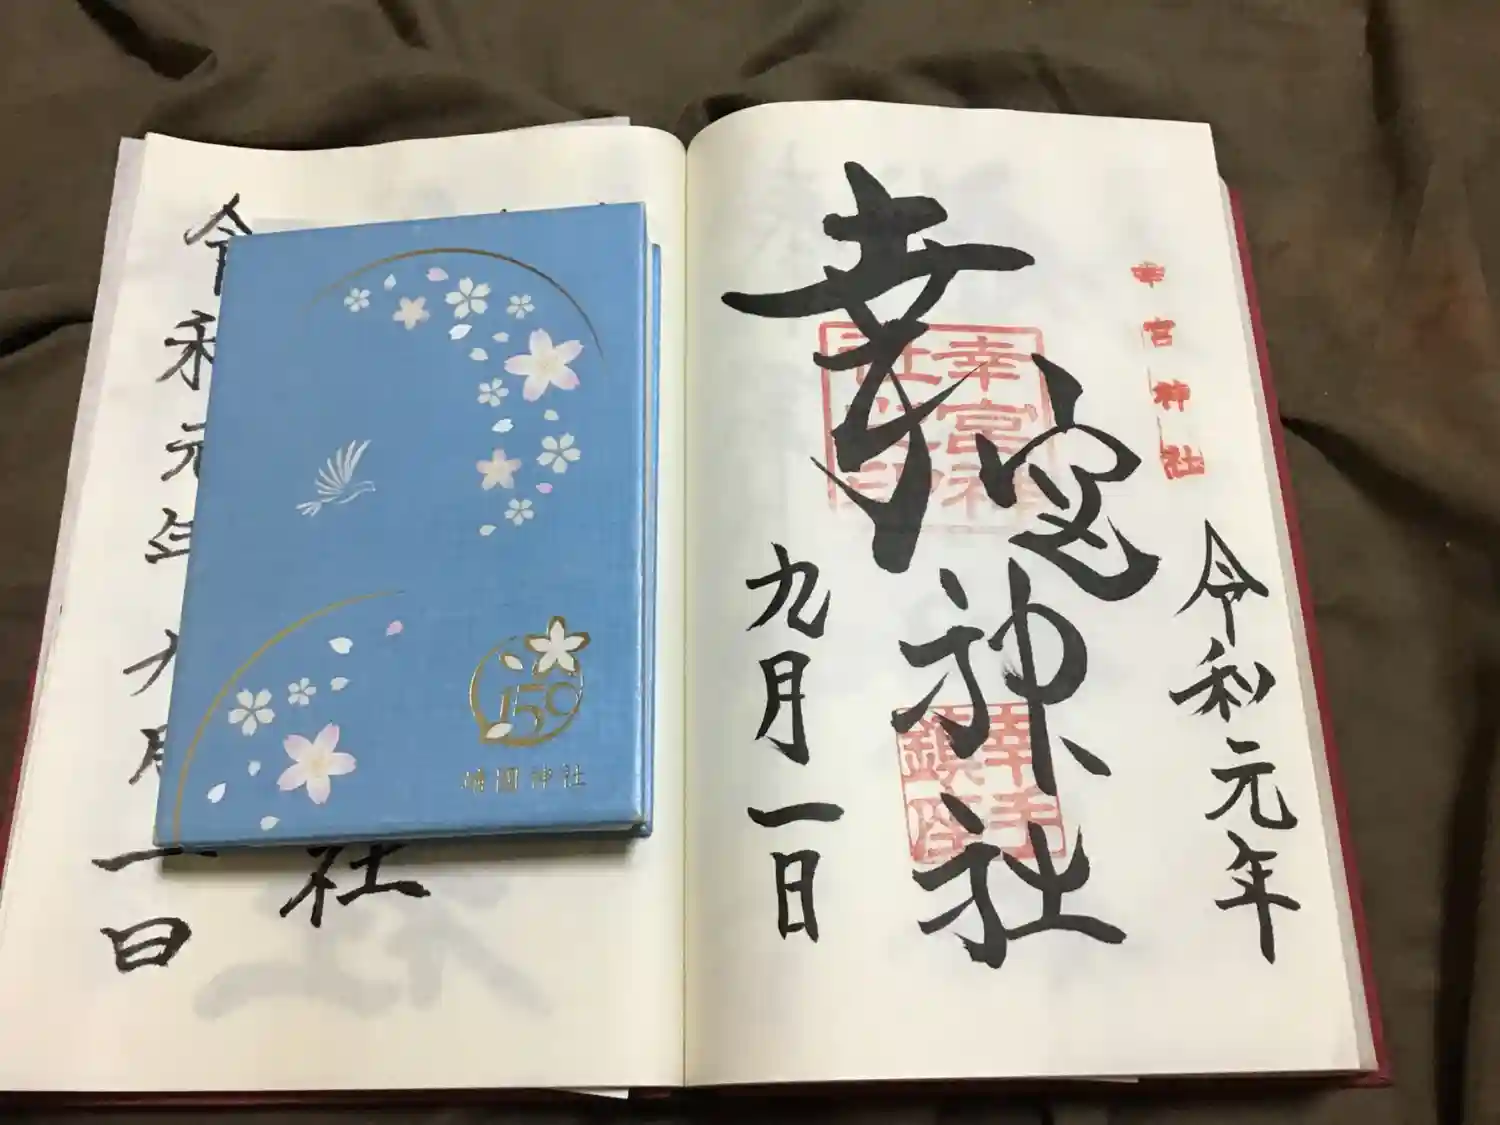 幸宮神社
令和元年
幸宮神社
幸宮神
社之印
幸手
鎮座
九月一日
150
靖國神社
令和元年九月一日
社